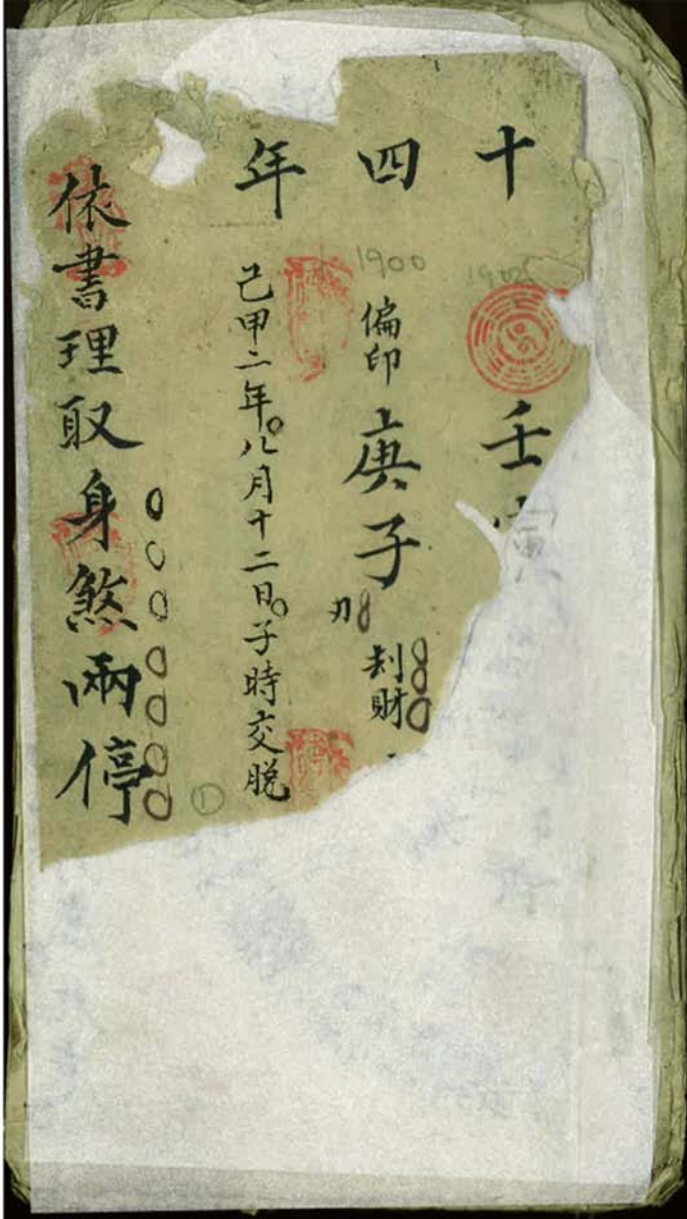 十
四
年
1902
壬寅
1900
偏印
庚子
刃
刦財
己甲二年。八月十二日。子時交脫
依書理取身煞兩停
①